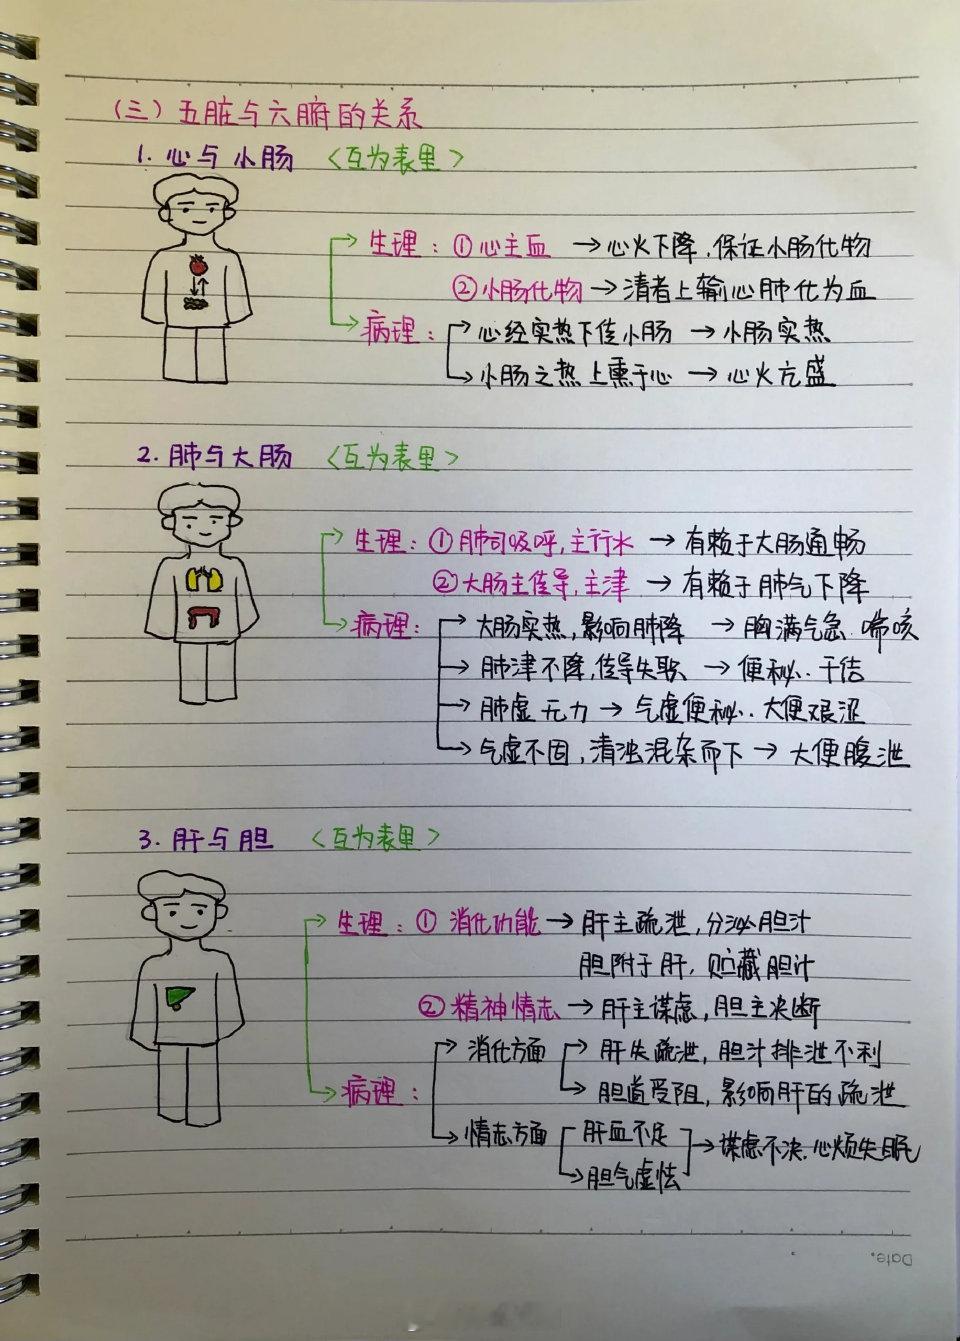 （三）五脏与六腑的关系
1. 心与小肠 〈互为表里〉
生理：①心主血 →心火下降.保证小肠化物
②小肠化物→清者上输心肺化为血
病理：心经实热下传小肠 →小肠实热
小肠之热上熏于心 →心火亢盛
2. 肺与大肠 〈互为表里〉
生理：①肺司吸呼,主行水 →有赖于大肠通畅
②大肠主传导,主津 →有赖于肺气下降
病理：大肠实热,影响肺降 →胸满气急.喘咳
肺津不降,传导失职 →便秘.干结
肺虚无力 →气虚便秘.大便艰涩
气虚不固,清浊混杂而下 →大便腹泄
3. 肝与胆 〈互为表里〉
生理：① 消化功能→肝主疏泄,分泌胆汁
胆附于肝,贮藏胆汁
②精神情志 →肝主谋虑,胆主决断
消化方面 肝失疏泄,胆汁排泄不利
病理： 胆道受阻,影响肝的疏泄
情志方面 肝血不足 →谋虑不决.心烦失眠
胆气虚怯
Date.